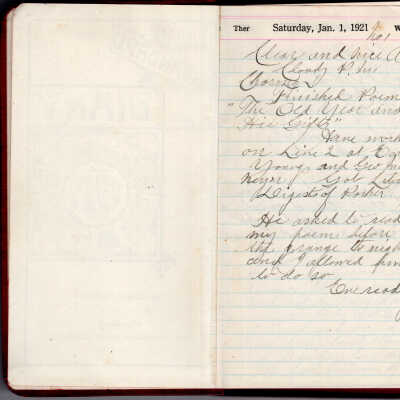 Ther Saturday, Jan. 1, 1921 W
No 1
Clear and nice A
Cloudy P. M.
Chores
Finished Poem
"The Old Year and
His Gifts"
Have work
on Line 2 at
Young and Geo
Meyer Got Lit
Digest of
He asked to read
my poem before
the grange to nigh
and I allowed him
to do so
Eve read